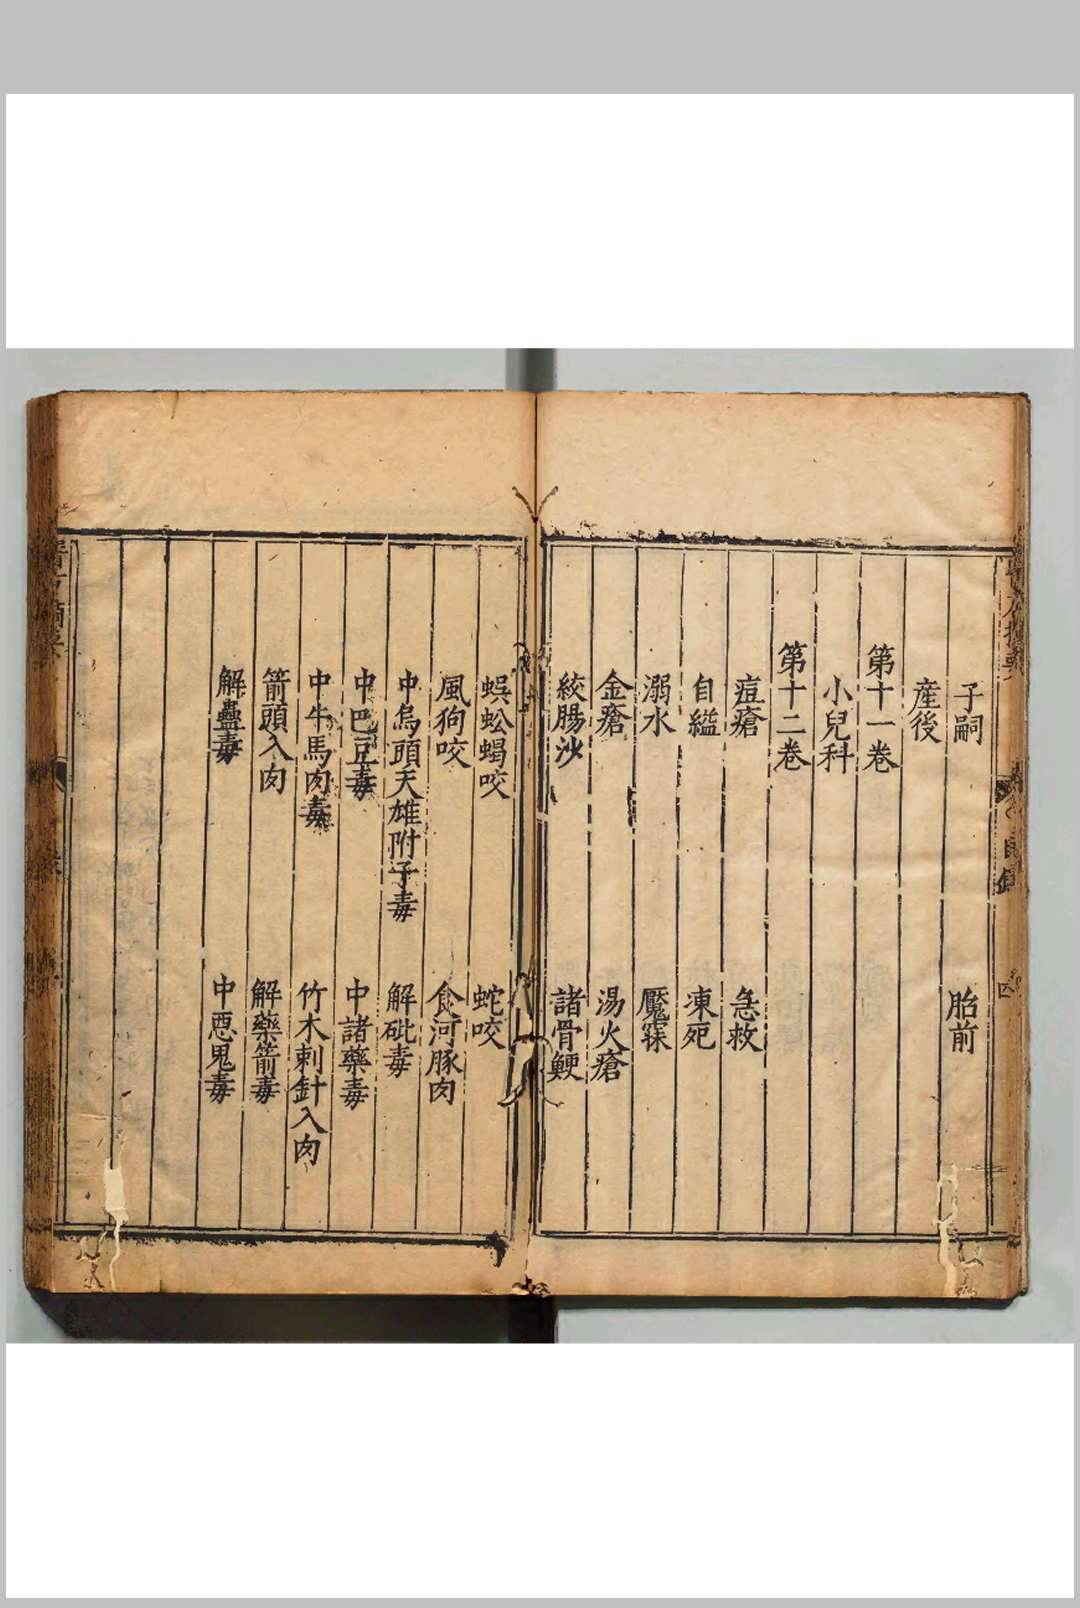 子嗣　胎前
産後
第十一卷
小兒科
第十二卷
痘瘡　急救
自縊　凍死
溺水　魘寐
金瘡　湯火瘡
絞腸沙　諸骨鯁
蜈蚣蝎咬　蛇咬
風狗咬　食河豚肉
中烏頭天雄附子毒　解砒毒
中巴豆毒　中諸藥毒
中牛馬肉毒　竹木刺針入肉
箭頭入肉　解藥箭毒
解蠱毒　中惡鬼毒